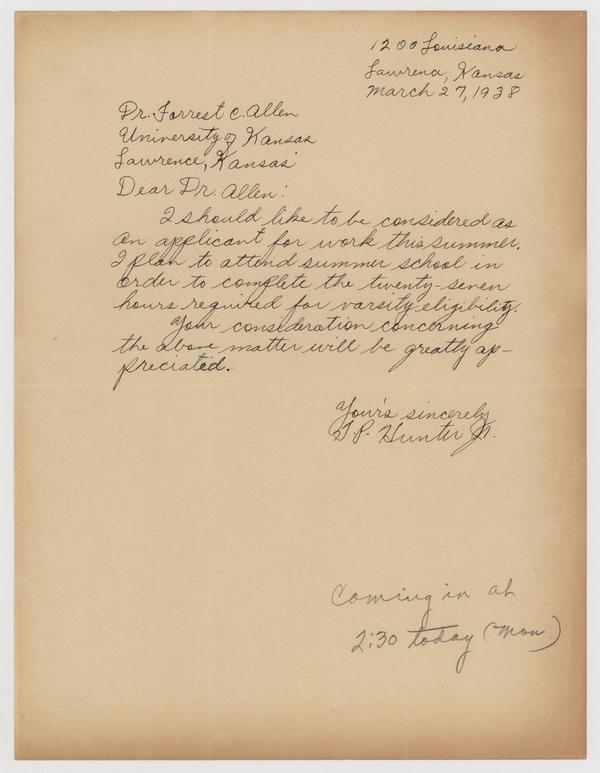 1200 Louisiana
Lawrence, Kansas
March 27, 1938
Dr. Forrest C. Allen
University of Kansas
Lawrence, Kansas
Dear Dr. Allen:
I should like to be considered as
an applicant for work this summer.
I plan to attend summer school in
order to complete the twenty-seven
hours required for varsity eligibility.
Your consideration concerning
the above matter will be greatly ap-
preciated.
Your's sincerely
T.P. Hunter Jr.
Coming in at
2:30 today (Mon.)